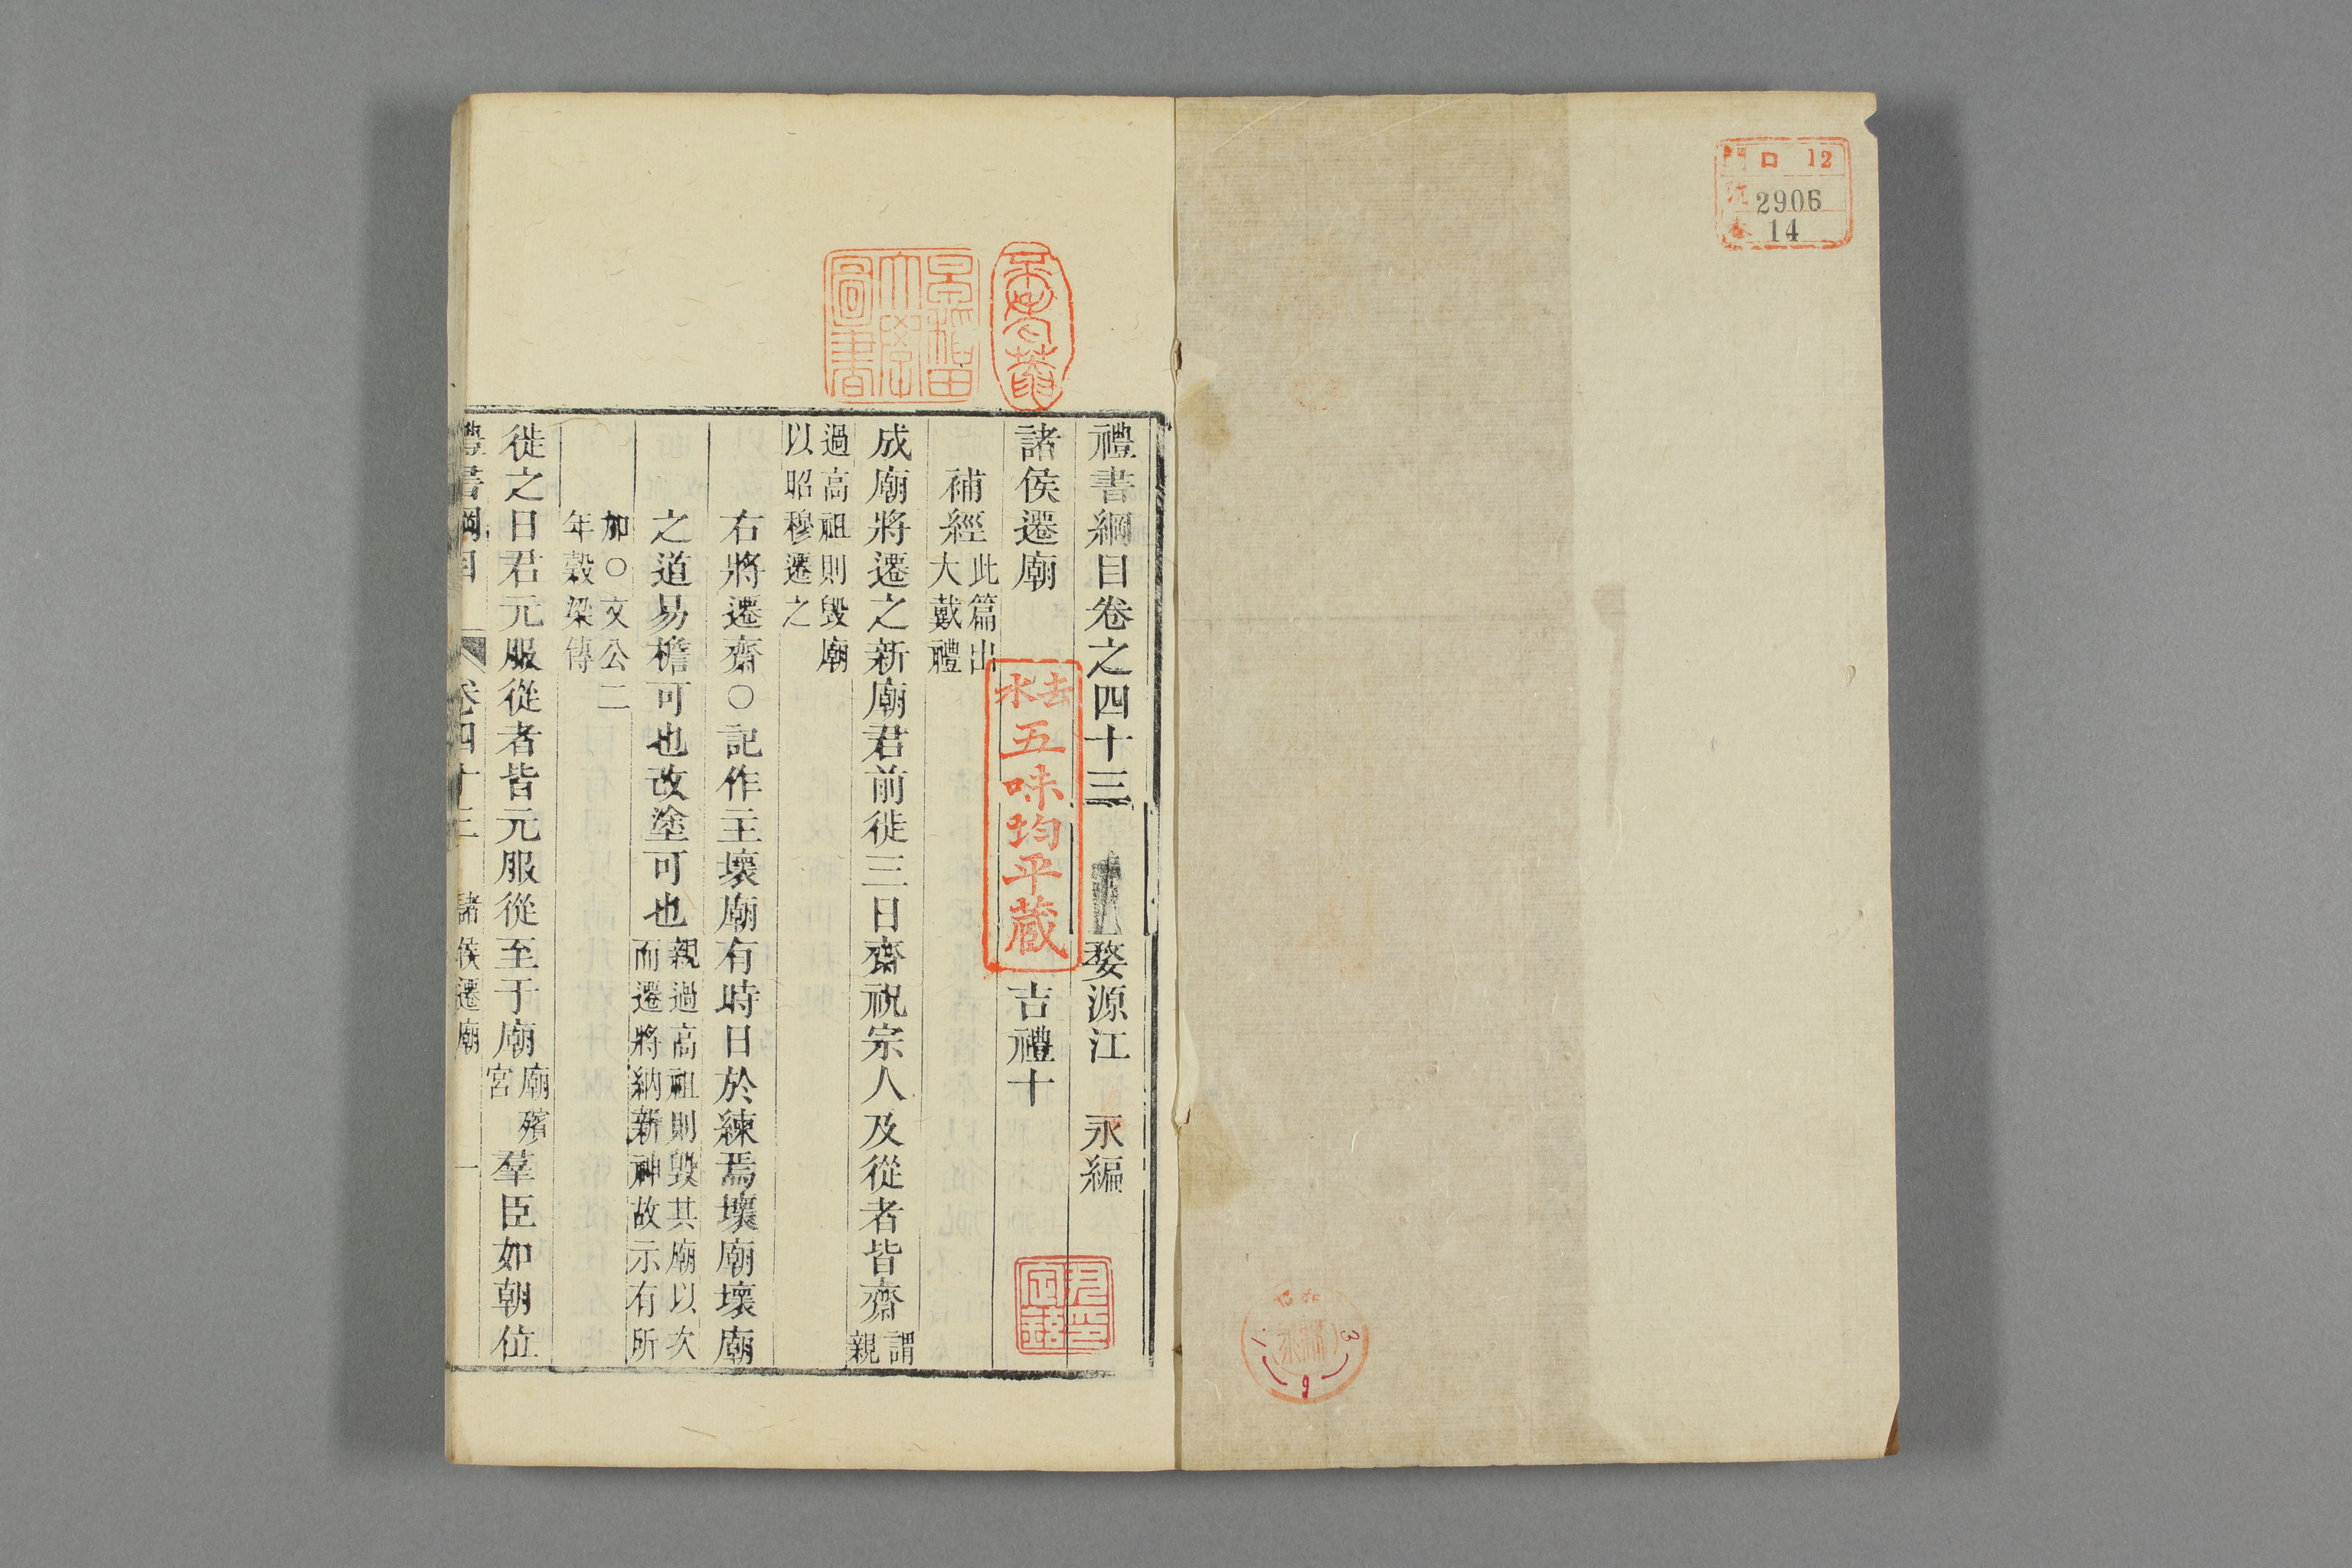 門 口 12
号 2906
巻 14
禮書綱目卷之四十三 婺源江 永編
諸侯遷廟 吉禮十
補經 此篇出大戴禮
成廟將遷之新廟君前徙三日齋祝宗人及從者皆齋 謂親
過高祖則毀廟以昭穆遷之
右將遷齋○記作主壞廟有時日於練焉壞廟壞廟
之道易檐可也改塗可也 親過高祖則毀其廟以次而遷將納新神故示有所
加○文公二年穀梁傳
徙之日君元服從者皆元服從至于廟 廟殯宮 羣臣如朝位
禮書綱目 卷四十三 諸侯遷廟 一
早稻田大學圖書
五味均平蔵
3
9